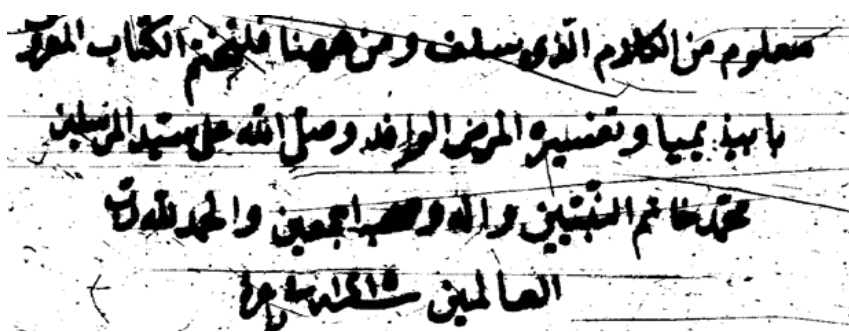 معلوم من الكلام الذى سلف ومن ههنا فلنختم الكتاب المعروف
بابيذيميا وتفسيره المرض الوافد وصلى الله على سيد المرسلين
محمد خاتم النبيين واله وصحبه اجمعين والحمد لله رب
العالمين